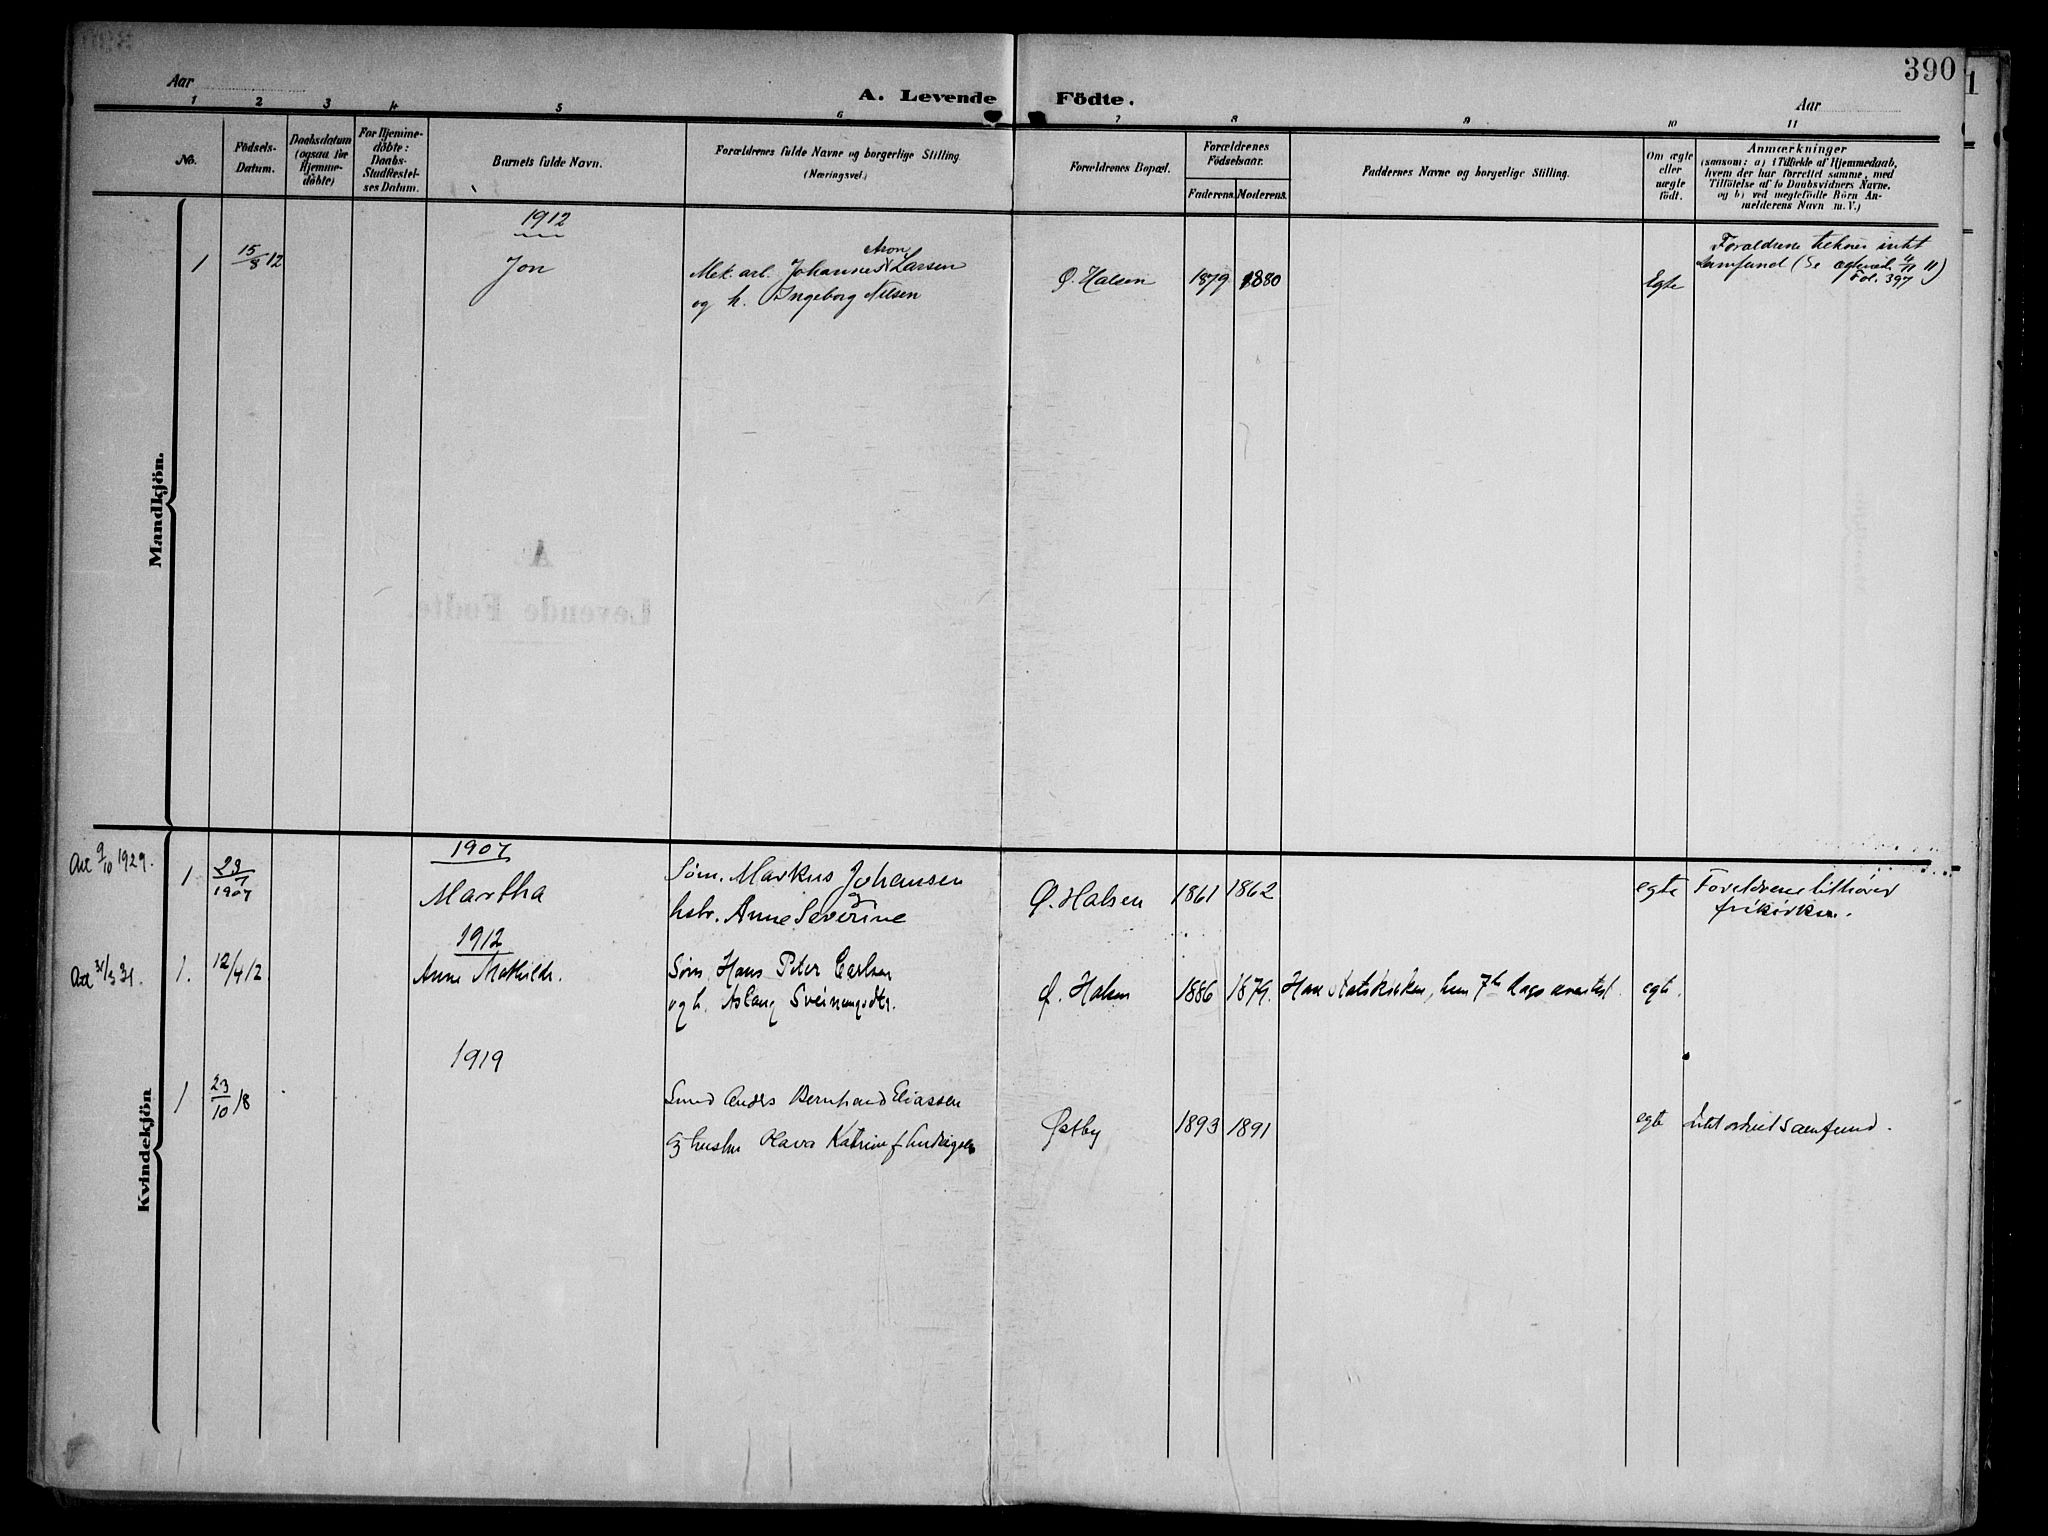 390
Aar
A. Levende Födte.
Aar
1 2 3 4 5 6 7 8 9 10 11
No.
Födsels-
Datum.
Daabsdatum
(ogsaa for
Hjemme-
döbte)
For Hjemme-
döbte:
Daabs-
Stadfæstel-
ses Datum.
Barnets fulde Navn.
Forældrenes fulde Navne og borgerlige Stilling.
(Næringsvei.)
Forældrenes Bopæl.
Forældrenes
Födselsaar.
Faderens. Moderens.
Faddernes Navne og borgerlige Stilling.
Om ægte
eller
uægte
födt.
Anmærkninger
(saasom: a) i Tilfælde af Hjemmedaab,
hvem der har forrettet samme, med
Tilföielse af to Daabsvidners Navne.
og b) ved uægtefödte Börn An-
melderens Navn m. V.)
Mandkjön.
1912
1 15/8 12 Jon
Aron
Mek. arb. Johannes Larsen
og h. Ingeborg Nilsen
Ø. Halsen 1879 1880
Egte
Forældrene intet
samfund (Se 4/11 11)
Fol. 397
A.
Levende Födte.
Kvindekjön
Att 9/10 1929.
1907
1 23/7 1907 Martha
Søm. Markus Johansen
hstr. Anne Severine
Ø. Halsen 1861 1862 egte
Foreldrene tilhører
frikirken.
1912
Att 31/3 31. 1. 12/4 12 Anne Mathilde.
Søm. Hans Peter Carlsen
og h. Aslaug Sveinungsdtr.
Ø. Halsen 1886 1879. Han statskirken, hun 7de dags advventist. egte.
1919
1 23/10 18
Smed Anders Bernhard Eliassen
og hustru Olava Katrine f. Ludvigsen
Østby 1893 1891 egte
samfund.